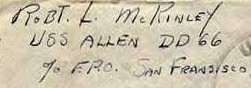 ROBT. L. McKINLEY
USS ALLEN DD 66
℅ F.P.O. SAN FRANSISCO